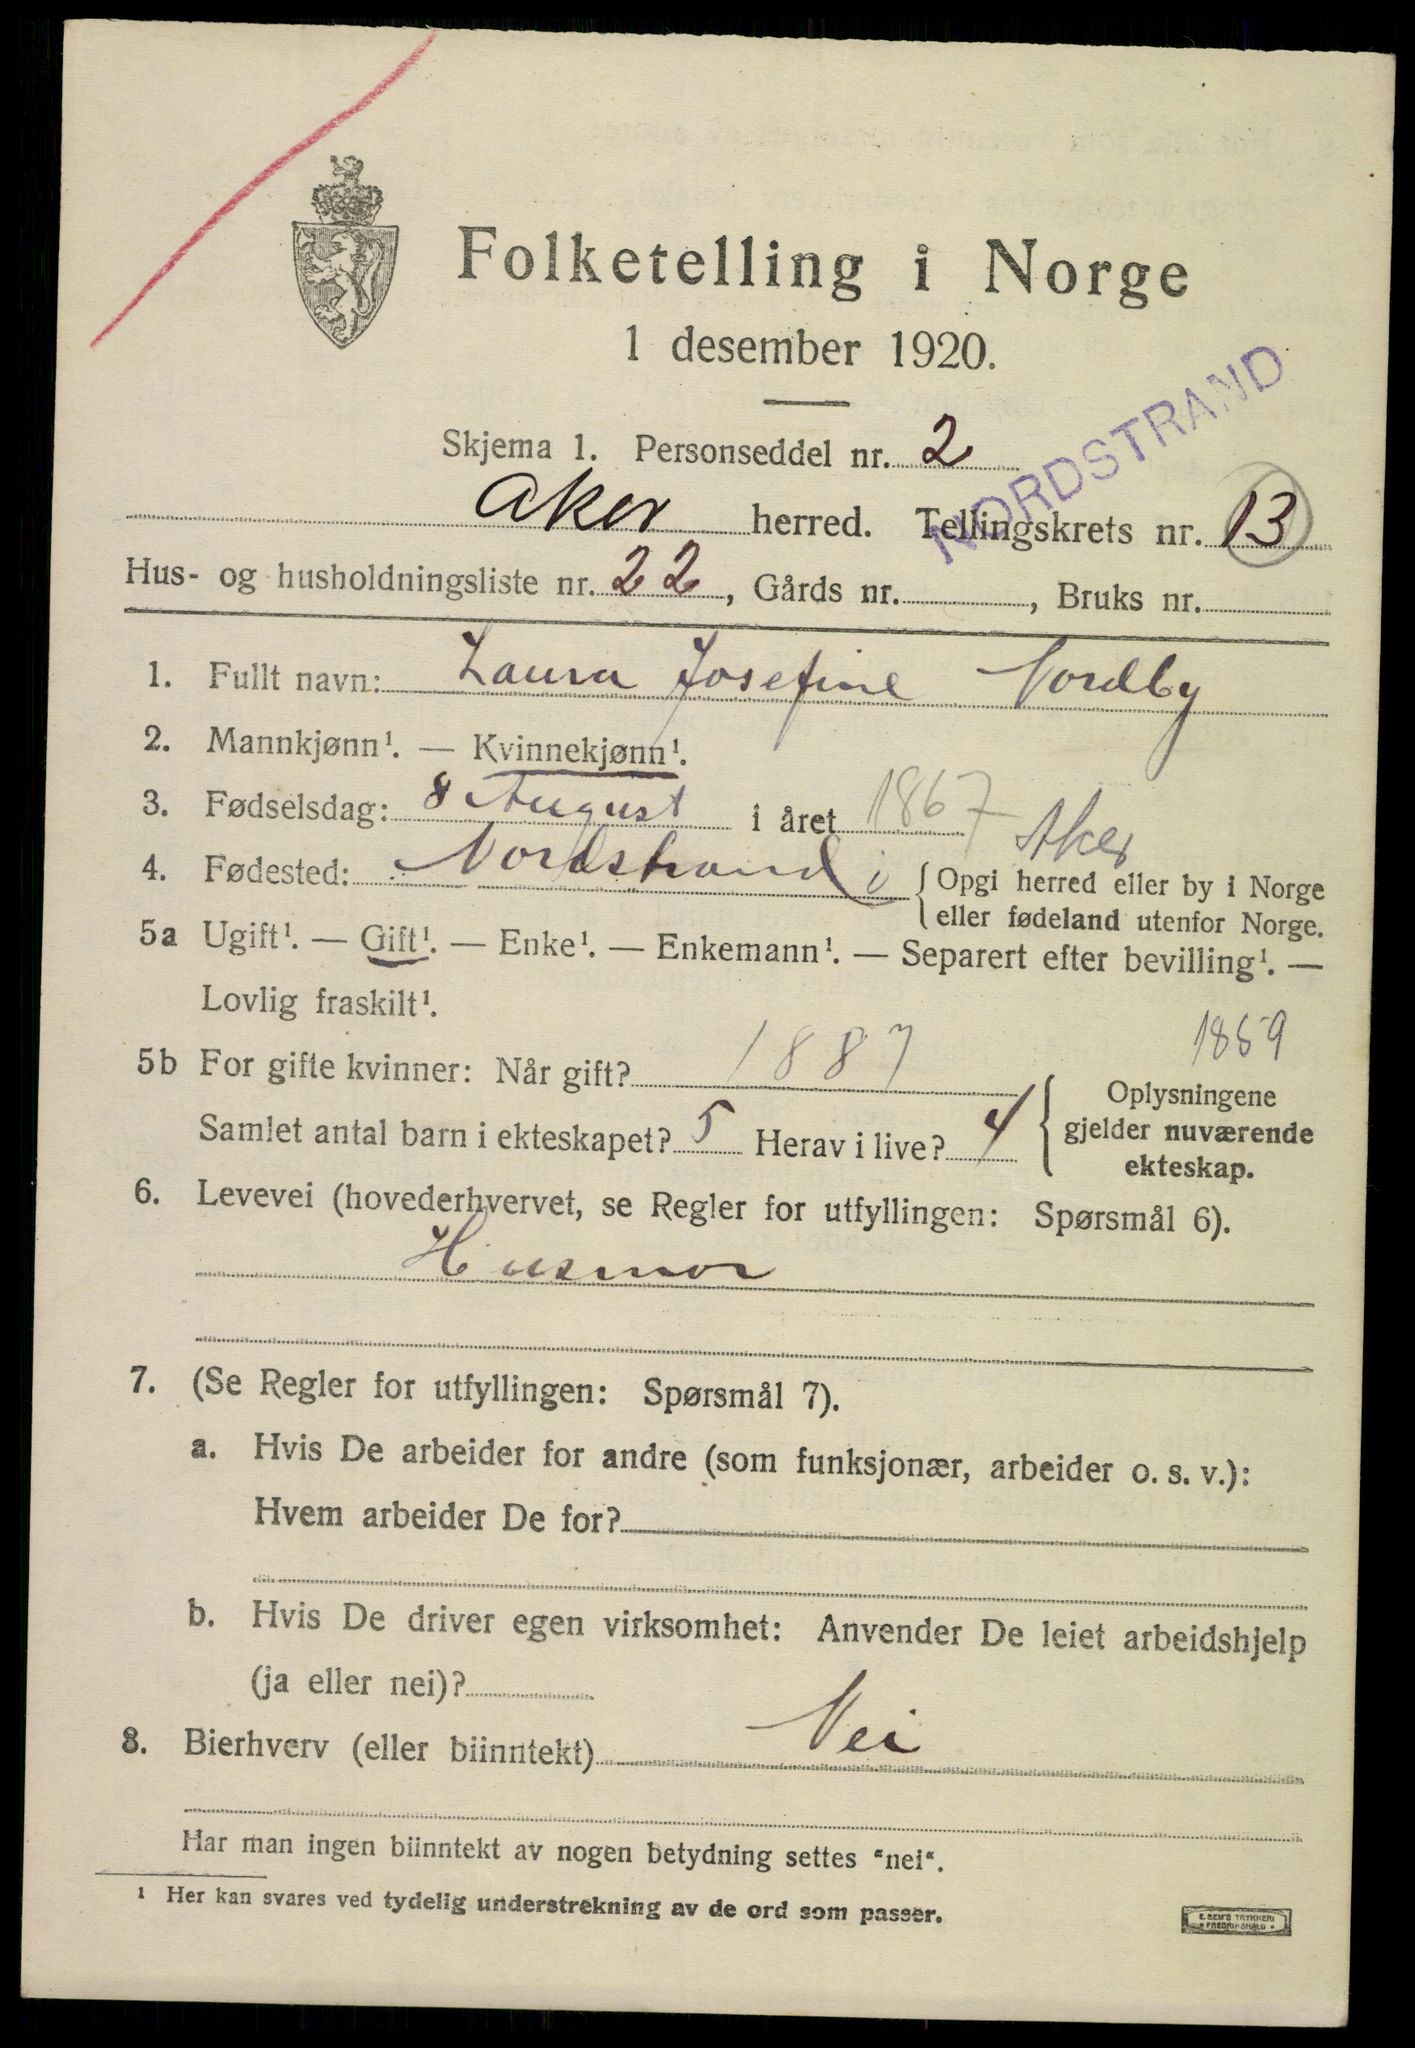 Folketelling i Norge
1 desember 1920.
NORDSTRAND
Skjema 1. Personseddel nr. 2
Aker herred. Tellingskrets nr. 13
Hus- og husholdningsliste nr. 22, Gårds nr. , Bruks nr.
1. Fullt navn: Laura Josefine Nordby
2. Mannkjønn¹. — Kvinnekjønn¹.
3. Fødselsdag: 8 August i året 1867
Aker
4. Fødested: Nordstrand i { Opgi herred eller by i Norge
eller fødeland utenfor Norge.
5a Ugift¹. — Gift¹. — Enke¹. — Enkemann¹. — Separert efter bevilling¹. —
Lovlig fraskilt¹.
1859
5b For gifte kvinner: Når gift? 1887
Samlet antal barn i ekteskapet? 5 Herav i live? 4
{ Oplysningene
gjelder nuværende
ekteskap.
6. Levevei (hovederhvervet, se Regler for utfyllingen: Spørsmål 6).
Husmor
7. (Se Regler for utfyllingen: Spørsmål 7).
a. Hvis De arbeider for andre (som funksjonær, arbeider o. s. v.):
Hvem arbeider De for?
b. Hvis De driver egen virksomhet: Anvender De leiet arbeidshjelp
(ja eller nei)?
8. Bierhverv (eller biinntekt) Nei
Har man ingen biinntekt av nogen betydning settes "nei".
¹ Her kan svares ved tydelig understrekning av de ord som passer.
E. SEM'S TRYKKERI
FREDRIKSHALD